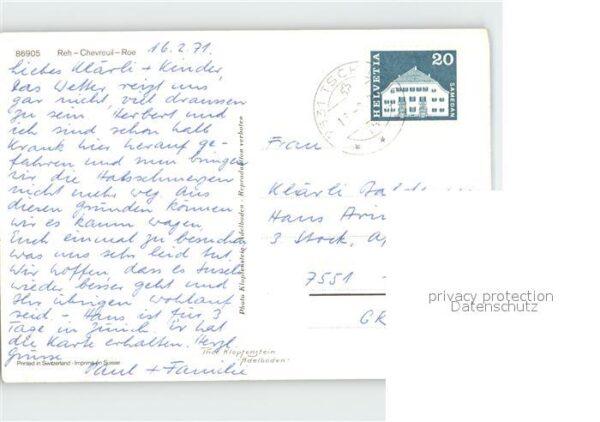 86905 Reh - Chevreuil - Roe
16.2.71.
Liebes Klärli + Kinder,
Das Wetter reizt uns
gar nicht, viel draussen
zu sein. Herbert und
ich sind schon halb
krank hier herauf ge-
fahren und nun bringen
wir die Halsschmerzen
nicht mehr weg. Aus
diesen gründen können
wir es kaum wagen,
Euch einmal zu besuchen
was uns sehr leid tut.
Wir hoffen, dass es
wieder besser geht und
Ihr übrigen wohlauf
seid. - Hans ist für 3
Tage in Zürich. Er hat
die Karte erhalten. Herzl.
Grüsse
Paul + Familie
Printed in Switzerland - Imprimé en Suisse
Photo Klopfenstein, Adelboden - Reproduktion verboten
Thor Klopfenstein
"Adelboden"
TSCH
HELVETIA
20
SAMEDAN
Frau
Klärli
Hans
3 Stock,
7551 -
GR
privacy protection
Datenschutz